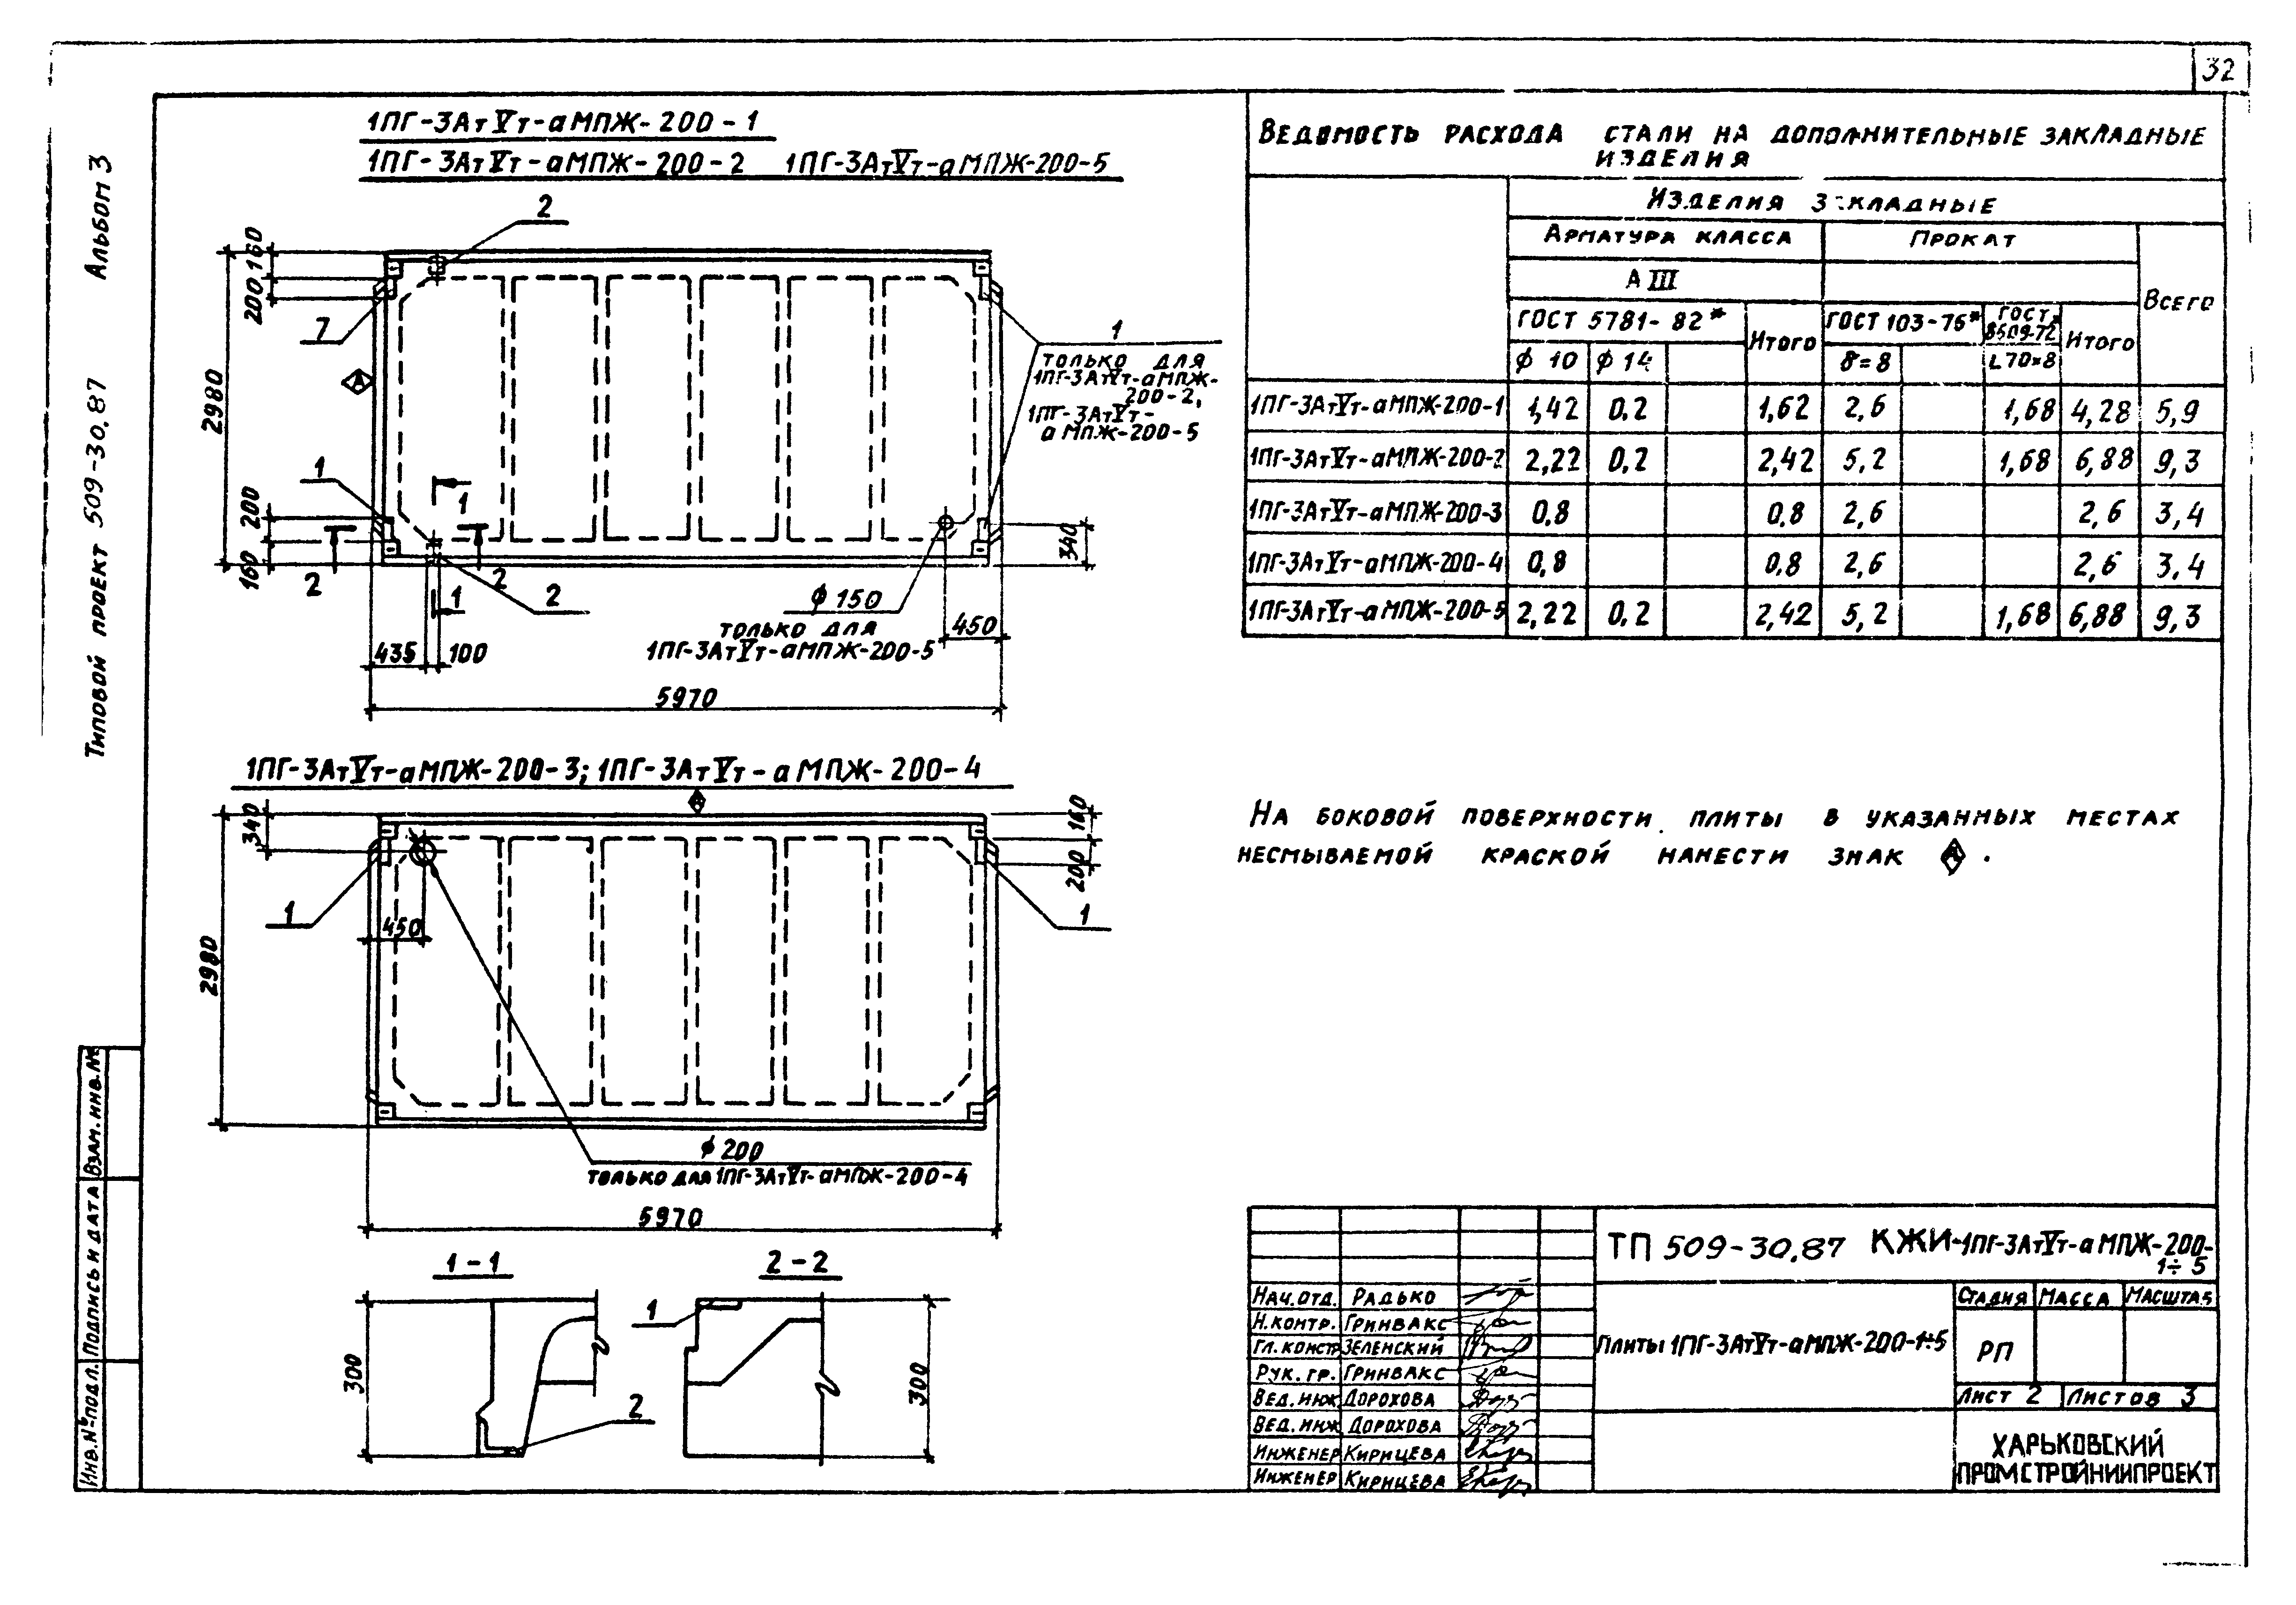 32
Альбом 3
Типовой проект 509-30.87
1ПГ-3АтVт-аМПЖ-200-1
1ПГ-3АтVт-аМПЖ-200-2 1ПГ-3АтVт-аМПЖ-200-5
2
160
200
7
А
2980
1
только для
1ПГ-3АтVт-аМПЖ-
200-2,
1ПГ-3АтVт-
аМПЖ-200-5
1
200
160
2
1
2
1
2
340
ϕ 150
только для
1ПГ-3АтVт-аМПЖ-200-5
450
435
100
5970
1ПГ-3АтVт-аМПЖ-200-3; 1ПГ-3АтVт-аМПЖ-200-4
А
340
160
200
1
450
1
2980
ϕ 200
только для 1ПГ-3АтVт-аМПЖ-200-4
5970
1-1
2-2
300
2
1
300
Ведомость расхода стали на дополнительные закладные
изделия
Изделия закладные
Арматура класса Прокат Всего
А III
ГОСТ 5781-82* Итого ГОСТ 103-76* ГОСТ 8509-72* Итого
ϕ 10 ϕ 14 δ=8 L70×8
1ПГ-3АтVт-аМПЖ-200-1 1,42 0.2 1,62 2,6 1,68 4,28 5,9
1ПГ-3АтVт-аМПЖ-200-2 2,22 0,2 2,42 5,2 1,68 6,88 9,3
1ПГ-3АтVт-аМПЖ-200-3 0,8 0,8 2,6 2,6 3,4
1ПГ-3АтVт-аМПЖ-200-4 0,8 0,8 2,6 2,6 3,4
1ПГ-3АтVт-аМПЖ-200-5 2,22 0,2 2,42 5,2 1,68 6,88 9,3
На боковой поверхности плиты в указанных местах
несмываемой краской нанести знак А.
ТП 509-30.87 КЖИ-1ПГ-3АтVт-аМПЖ-200-
1÷5
Нач.отд. Радько
Н.контр. Гринвакс
Гл.констр Зеленский
Рук.гр. Гринвакс
Вед.инж Дорохова
Вед.инж Дорохова
Инженер Кирицева
Инженер Кирицева
Плиты 1ПГ-3АтVт-аМПЖ-200-1÷5
Стадия Масса Масштаб
РП
Лист 2 Листов 3
ХАРЬКОВСКИЙ
ПРОМСТРОЙНИИПРОЕКТ
Инв.№подл. Подпись и дата Взам.инв.№